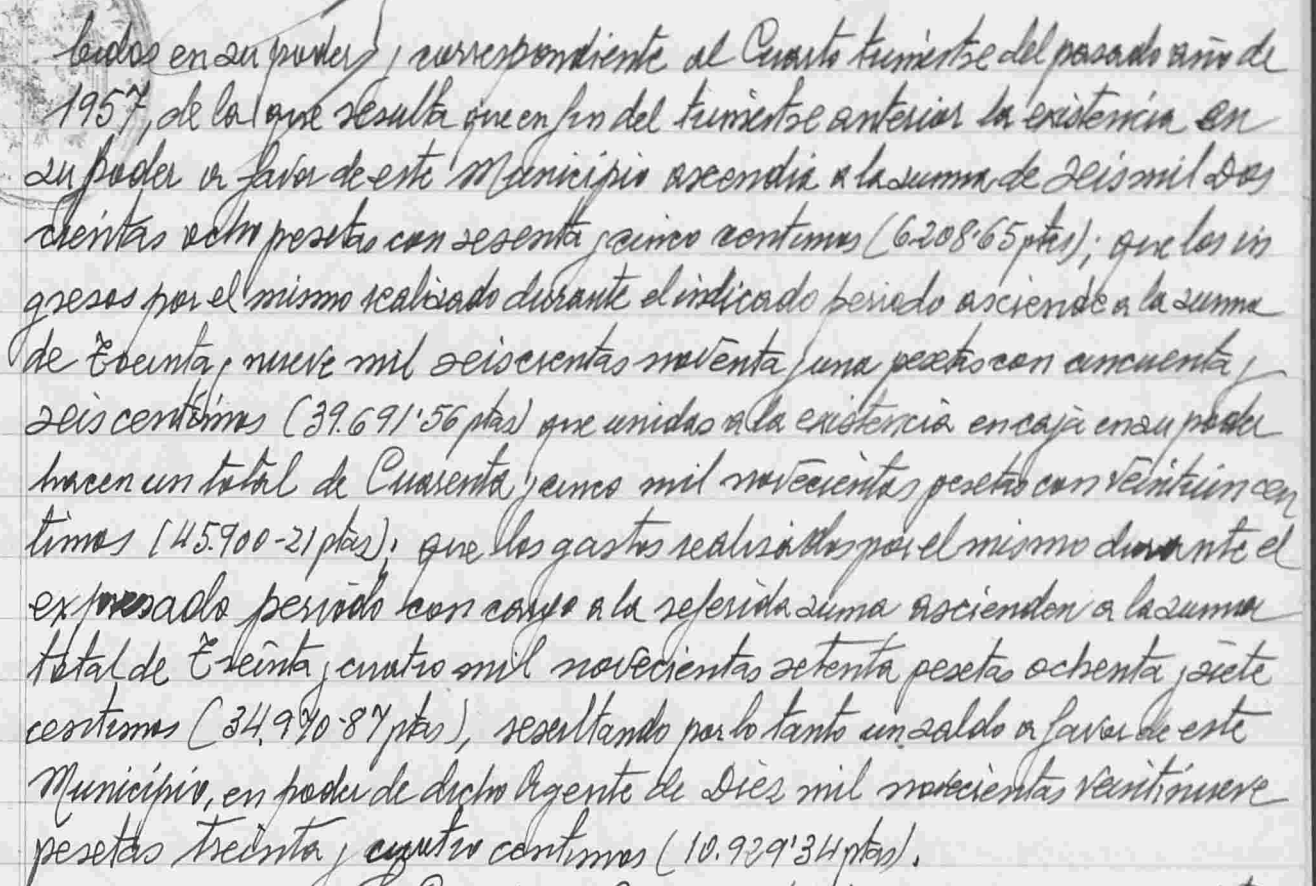 bidos en su poder, y correspondiente al Cuarto trimestre del pasado año de
1957, de la que resulta que en fin del trimestre anterior la existencia en
su poder a favor de este Município ascendia a la summa de seis mil Dos
cientas ocho pesetas con sesenta y cinco centimos (6.208'65 ptas); que los in
gresos por el mismo realizado durante el indicado periodo asciende a la summa
de Treinta y nueve mil seiscientas noventa y una pesetas con cincuenta y
seis centimos (39.691'56 ptas) que unidas a la existencia en caja en su poder
hacen un total de Cuarenta y cinco mil novecientas pesetas con veintiun cen
timos (45.900-21 ptas); que los gastos realizados por el mismo durante el
expresado periodo con cargo a la referida suma ascienden a la summa
total de Treinta y cuatro mil novecientas setenta pesetas ochenta y siete
centimos (34.970-87 ptas), resultando por lo tanto un saldo a favor de este
Município, en poder de dicho Agente de Diez mil novecientas veintinueve
pesetas treinta y cuatro centimos (10.929'34 ptas).